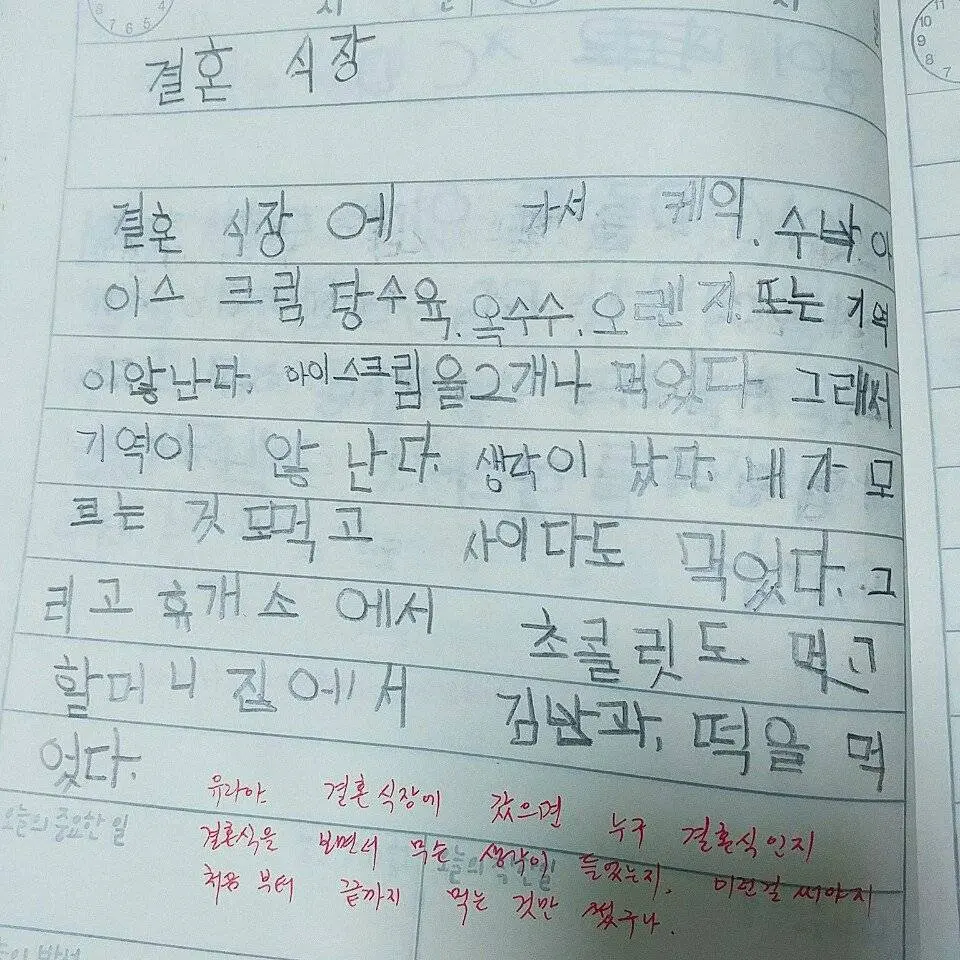 결혼 식장
결혼 식장 에 가서 케익. 수박. 아
이스 크림, 탕수육. 옥수수. 오렌지. 또는 기역
이않난다. 아이스크림을2개나 먹었다. 그래서
기역이 않 난다. 생각이 났다. 내가 모
르는 것 도먹고 사이다도 먹었다. 그
리고 휴개소 에서 초콜릿도 먹고
할머니 집에서 김밥과, 떡을 먹
었다.
유라야 결혼식장에 갔으면 누구 결혼식인지
결혼식을 보면서 무슨 생각이 들었는지. 이런걸 써야지
처음 부터 끝까지 먹는 것만 썼구나.
오늘의 중요한 일